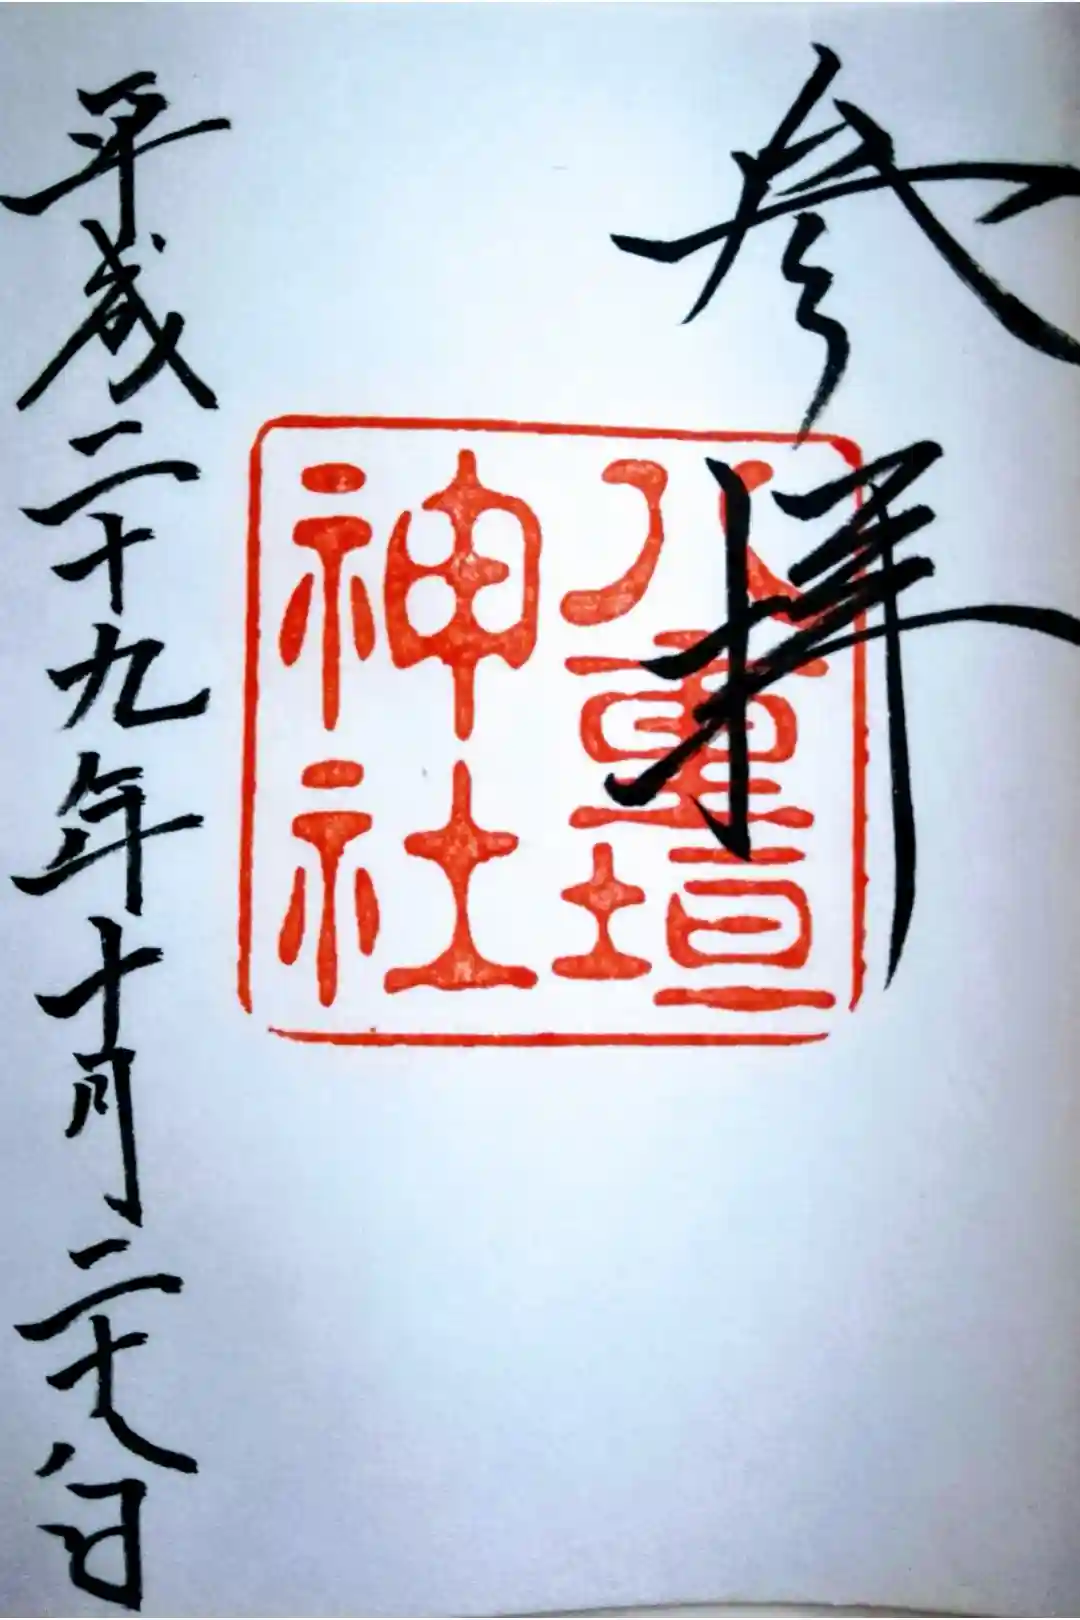 参拝
八重垣
神社
平成二十九年十月二十八日